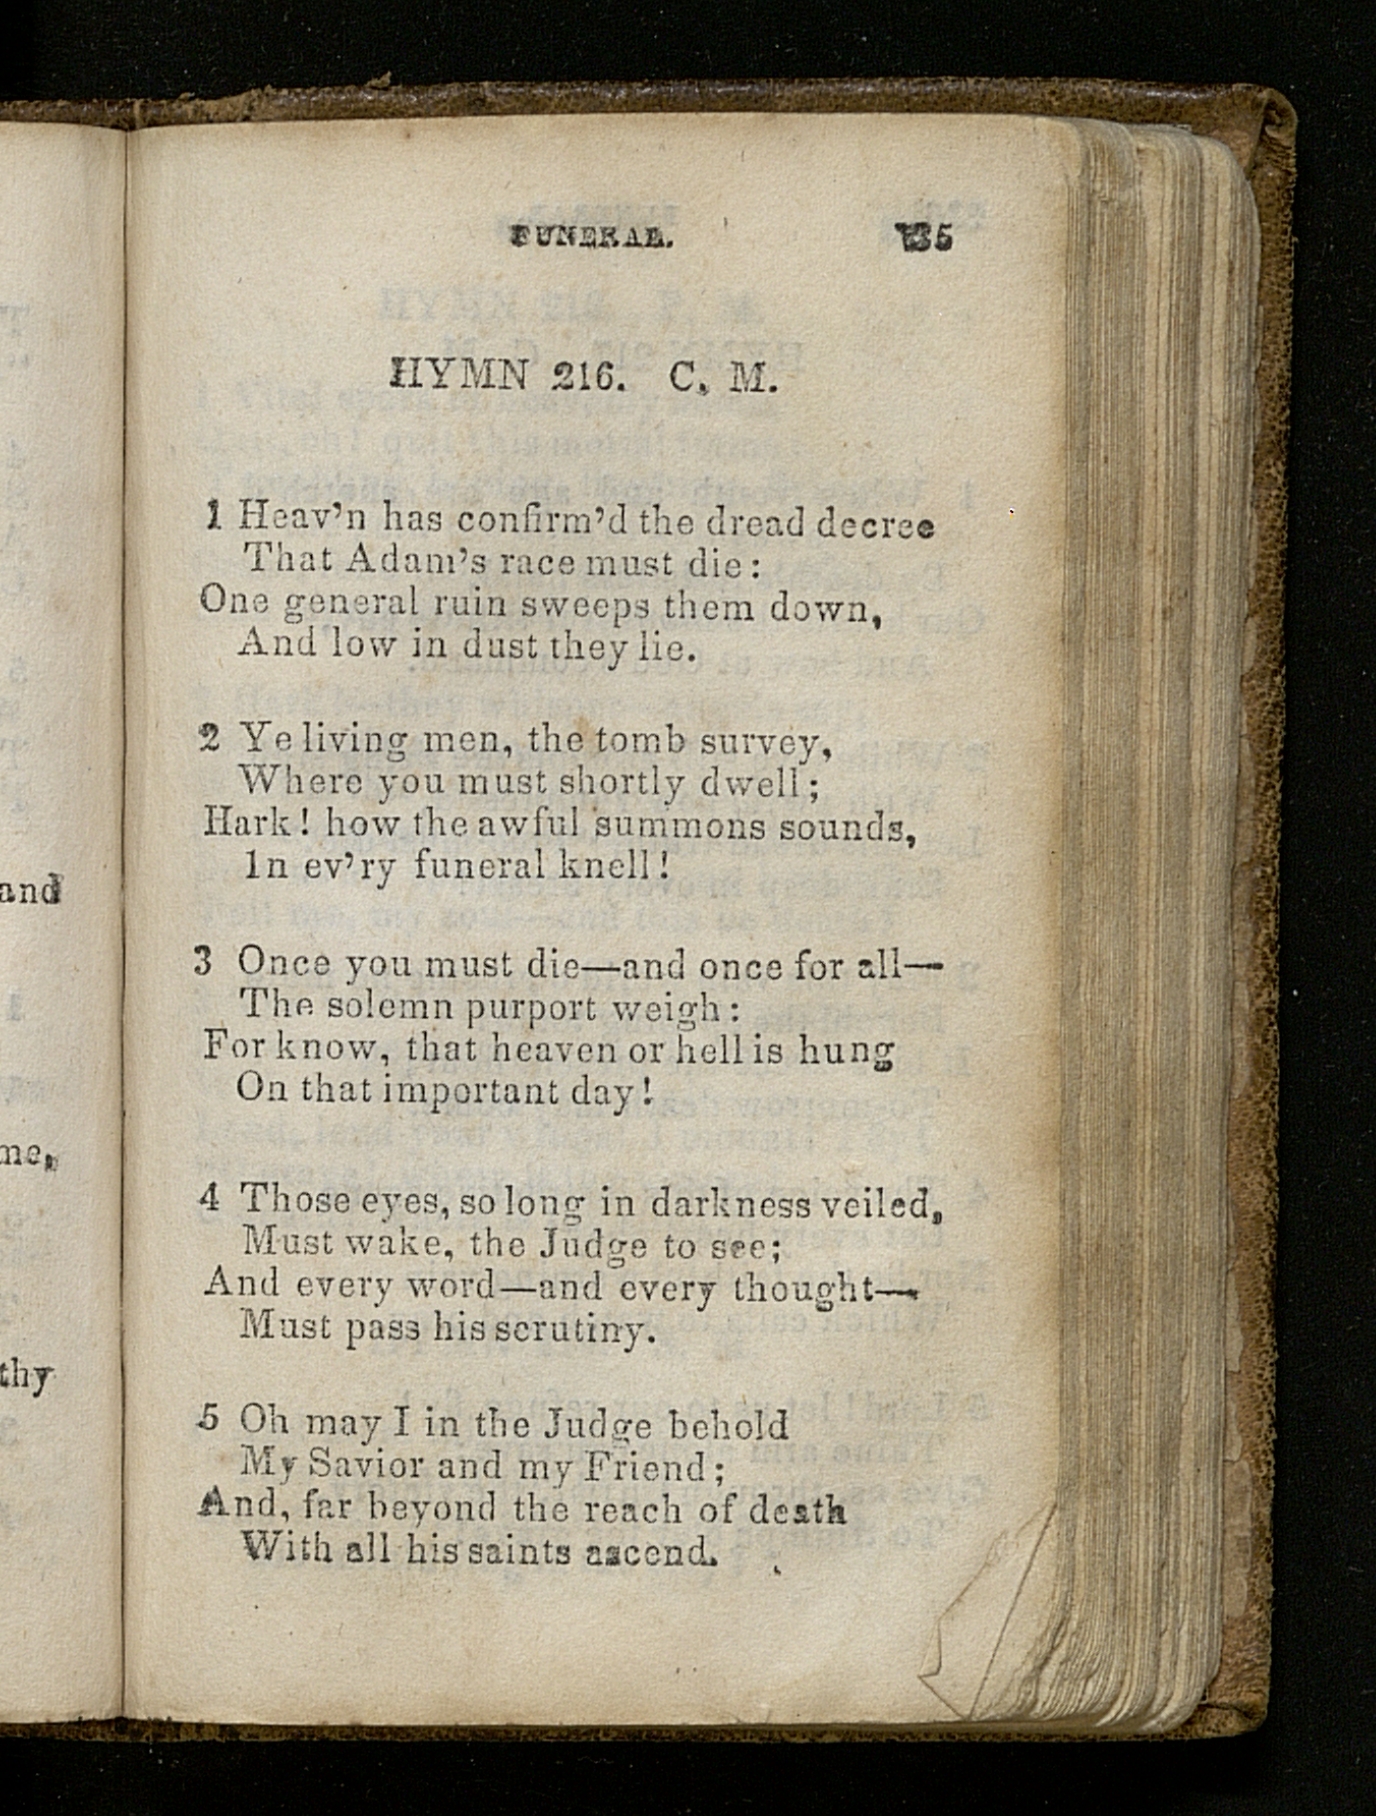 and
me,
thy
FUNERAL.
HYMN 216. C. M.
1 Heav'n has confirm'd the dread decree
That Adam's race must die:
One general ruin sweeps them down,
And low in dust they lie.
2 Ye living men, the tomb survey,
Where you must shortly dwell;
Hark! how the awful summons sounds,
In ev'ry funeral knell!
3 Once you must die—and once for all—
The solemn purport weigh:
For know, that heaven or hell is hung
On that important day!
4 Those eyes, so long in darkness veiled,
Must wake, the Judge to see;
And every word—and every thought—
Must pass his scrutiny.
5 Oh may I in the Judge behold
My Savior and my Friend;
And, far beyond the reach of death
With all his saints ascend.